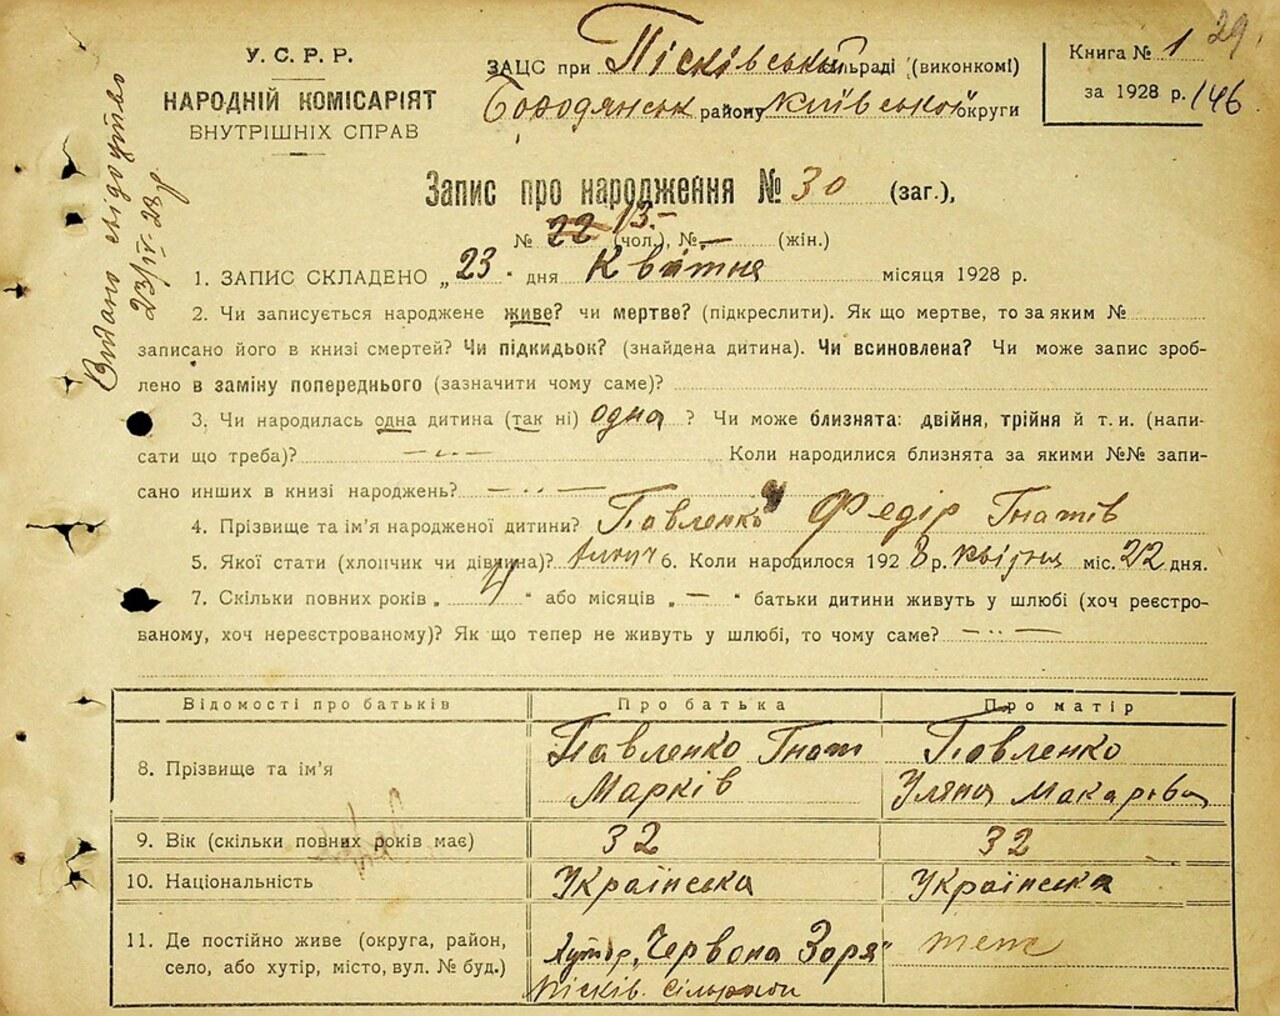 29.
У. С. Р. Р.
НАРОДНІЙ КОМІСАРІЯТ
ВНУТРІШНІХ СПРАВ
ЗАЦС при Пісківській сільраді (виконкомі)
Бородянськ району Київської округи
Книга № 1
за 1928 р. 146
Видано свідоцтво
23/IV 23 р.
Запис про народження № 30 (заг.),
№ 22 13 (чол.), № — (жін.)
1. ЗАПИС СКЛАДЕНО „23" дня Квітня місяця 1928 р.
2. Чи записується народжене живе? чи мертве? (підкреслити). Як що мертве, то за яким №
записано його в книзі смертей? Чи підкидьок? (знайдена дитина). Чи всиновлена? Чи може запис зроб-
лено в заміну попереднього (зазначити чому саме)?
3. Чи народилась одна дитина (так ні) одна ? Чи може близнята: двійня, трійня й т. и. (напи-
сати що треба)? Коли народилися близнята за якими №№ запи-
сано инших в книзі народжень?
4. Прізвище та ім'я народженої дитини? Павленко Федір Гнатів
5. Якої статі (хлопчик чи дівчина)? 6. Коли народилося 1928 р. квітня міс. 22 дня.
7. Скільки повних років „ 4 " або місяців „ — " батьки дитини живуть у шлюбі (хоч реєстро-
ваному, хоч нереєстрованому)? Як що тепер не живуть у шлюбі, то чому саме?
Відомості про батьків Про батька Про матір
8. Прізвище та ім'я Павленко Гнат Марків Павленко Уляна Макарівна
9. Вік (скільки повних років має) 32 32
10. Національність Українська Українська
11. Де постійно живе (округа, район,
село, або хутір, місто, вул. № буд.) Хутор „Червона Зоря" теж
Пісків. Сільради